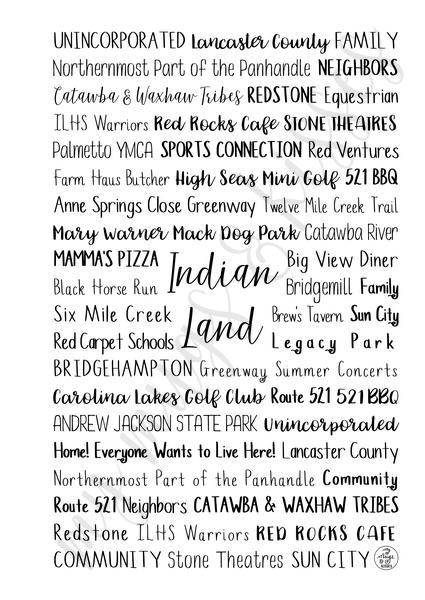 UNINCORPORATED Lancaster County FAMILY
Northernmost Part of the Panhandle NEIGHBORS
Catawba & Waxhaw Tribes REDSTONE Equestrian
ILHS Warriors Red Rocks Cafe STONE THEATRES
Palmetto YMCA SPORTS CONNECTION Red Ventures
Farm Haus Butcher High Seas Mini Golf 521 BBQ
Anne Springs Close Greenway Twelve Mile Creek Trail
Mary Warner Mack Dog Park Catawba River
MAMMA'S PIZZA Big View Diner
Indian
Black Horse Run Bridgemill Family
Six Mile Creek Brew's Tavern Sun City
Land
Red Carpet Schools Legacy Park
BRIDGEHAMPTON Greenway Summer Concerts
Carolina Lakes Golf Club Route 521 521 BBQ
ANDREW JACKSON STATE PARK Unincorporated
Home! Everyone Wants to Live Here! Lancaster County
Northernmost Part of the Panhandle Community
Route 521 Neighbors CATAWBA & WAXHAW TRIBES
Redstone ILHS Warriors RED ROCKS CAFE
COMMUNITY Stone Theatres SUN CITY